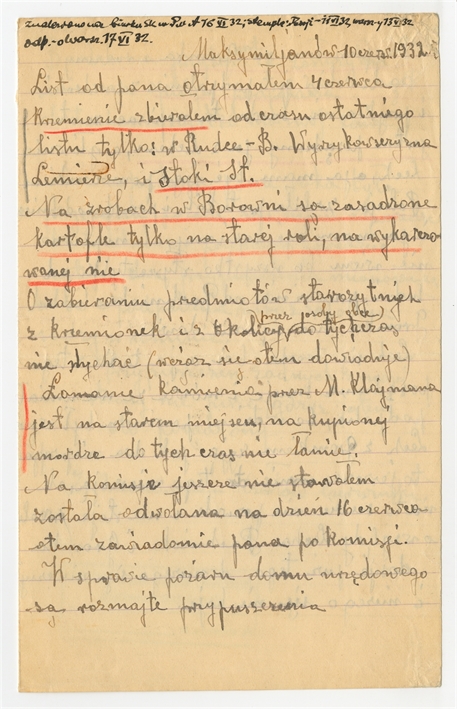 znalezione biurku w P.M.A 16 VI 32, stemple: Tasij - 11 VI 32, warsz-y 13 VI 32
odp. - otwarsz. 17 VI 32.
Maksymiljanów 10 czerw. 1932 r
List od pana otrzymałem 4 czerwca
Krzemienie zbierałem od czasu ostatniego
listu tylko: w Rudce-B. Wyrzykowszczyzna
Lemierze, i Stoki St.
Na zrobach w Borowni są zasadzone
kartofle tylko na starej roli, na wykarczo
wanej nie
O zabieraniu predmiotów starorzytnych
z krzemionek i z okolicy (przez osoby obce) do tych czas
nie słychać (wciąż się otem dowiaduje)
Łamanie kamienia przez M. Klajmana
jest na starem miejscu, na kupionej
mordze do tych czas nie łamie.
Na komisje jeszcze nie stawałem
została odwołana na dzień 16 czerwca
otem zawiadomie pana po komisji.
W sprawie pożaru domu urzędowego
są rozmajte przypuszczenia